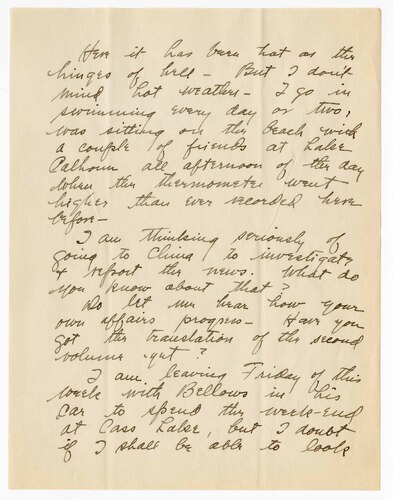 Here it has been hot as the
hinges of hell - But I don't
mind hot weather - I go in
swimming every day or two;
was sitting on the beach with
a couple of friends at Lake
Calhoun all afternoon of the day
when the thermometer went
higher than ever recorded here
before -
I am thinking seriously of
going to China to investigate
& report the news. What do
you know about that?
Do let me hear how your
own affairs progress - Have you
got the translation of the second
volume yet?
I am leaving Friday of this
week with Bellows in his
car to spend the week-end
at Cass Lake, but I doubt
if I shall be able to look